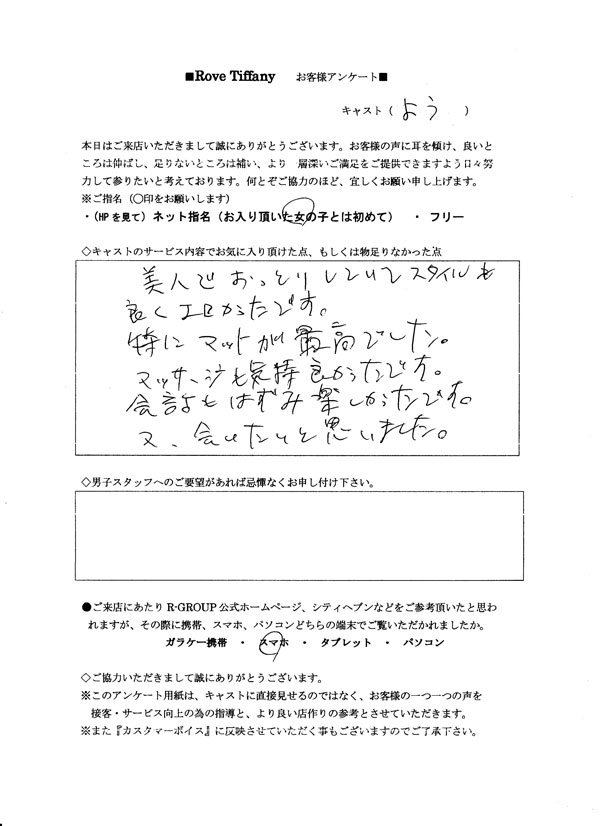 ■Rove Tiffany お客様アンケート■
キャスト（よう）
本日はご来店いただきまして誠にありがとうございます。お客様の声に耳を傾け、良いと
ころは伸ばし、足りないところは補い、より 層深いご満足をご提供できますよう日々努
力して参りたいと考えております。何とぞご協力のほど、宜しくお願い申し上げます。
※ご指名（〇印をお願いします）
・（HPを見て）ネット指名（お入り頂いた女の子とは初めて） ・ フリー
◇キャストのサービス内容でお気に入り頂けた点、もしくは物足りなかった点
美人でおっとりしていてスタイルも
良くエロかったです。
特にマットが最高でした。
マッサージも気持良かったです。
会話もはずみ楽しかったです。
又、会いたいと思いました。
◇男子スタッフへのご要望があれば忌憚なくお申し付け下さい。
●ご来店にあたり R-GROUP 公式ホームページ、シティヘブンなどをご参考頂いたと思わ
れますが、その際に携帯、スマホ、パソコンどちらの端末でご覧いただかれましたか。
ガラケー携帯 ・ スマホ ・ タブレット ・ パソコン
◇ご協力いただきまして誠にありがとうございます。
※このアンケート用紙は、キャストに直接見せるのではなく、お客様の一つ一つの声を
接客・サービス向上の為の指導と、より良い店作りの参考とさせていただきます。
※また『カスタマーボイス』に反映させていただく事もございますのでご了承下さい。